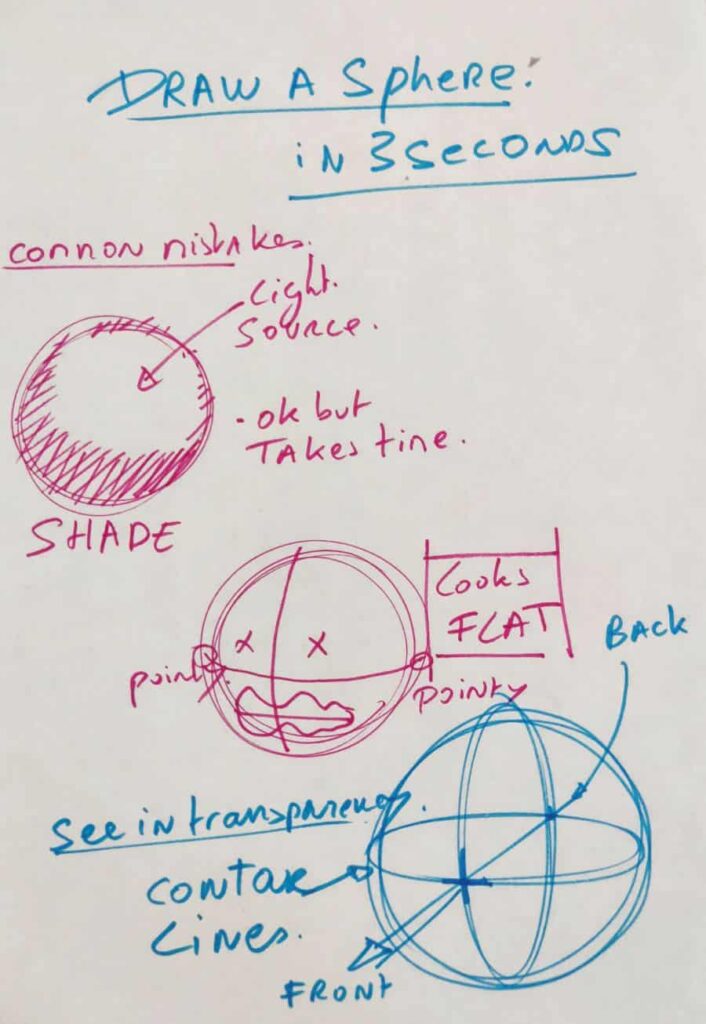 DRAW A Sphere:
in 3 SecoNDS
common mistakes.
Light.
Source.
. ok but
TAkes time.
SHADE
Looks
FLAT
BACK
pointy
pointy
See in transparency.
Contour
Lines.
FRONT